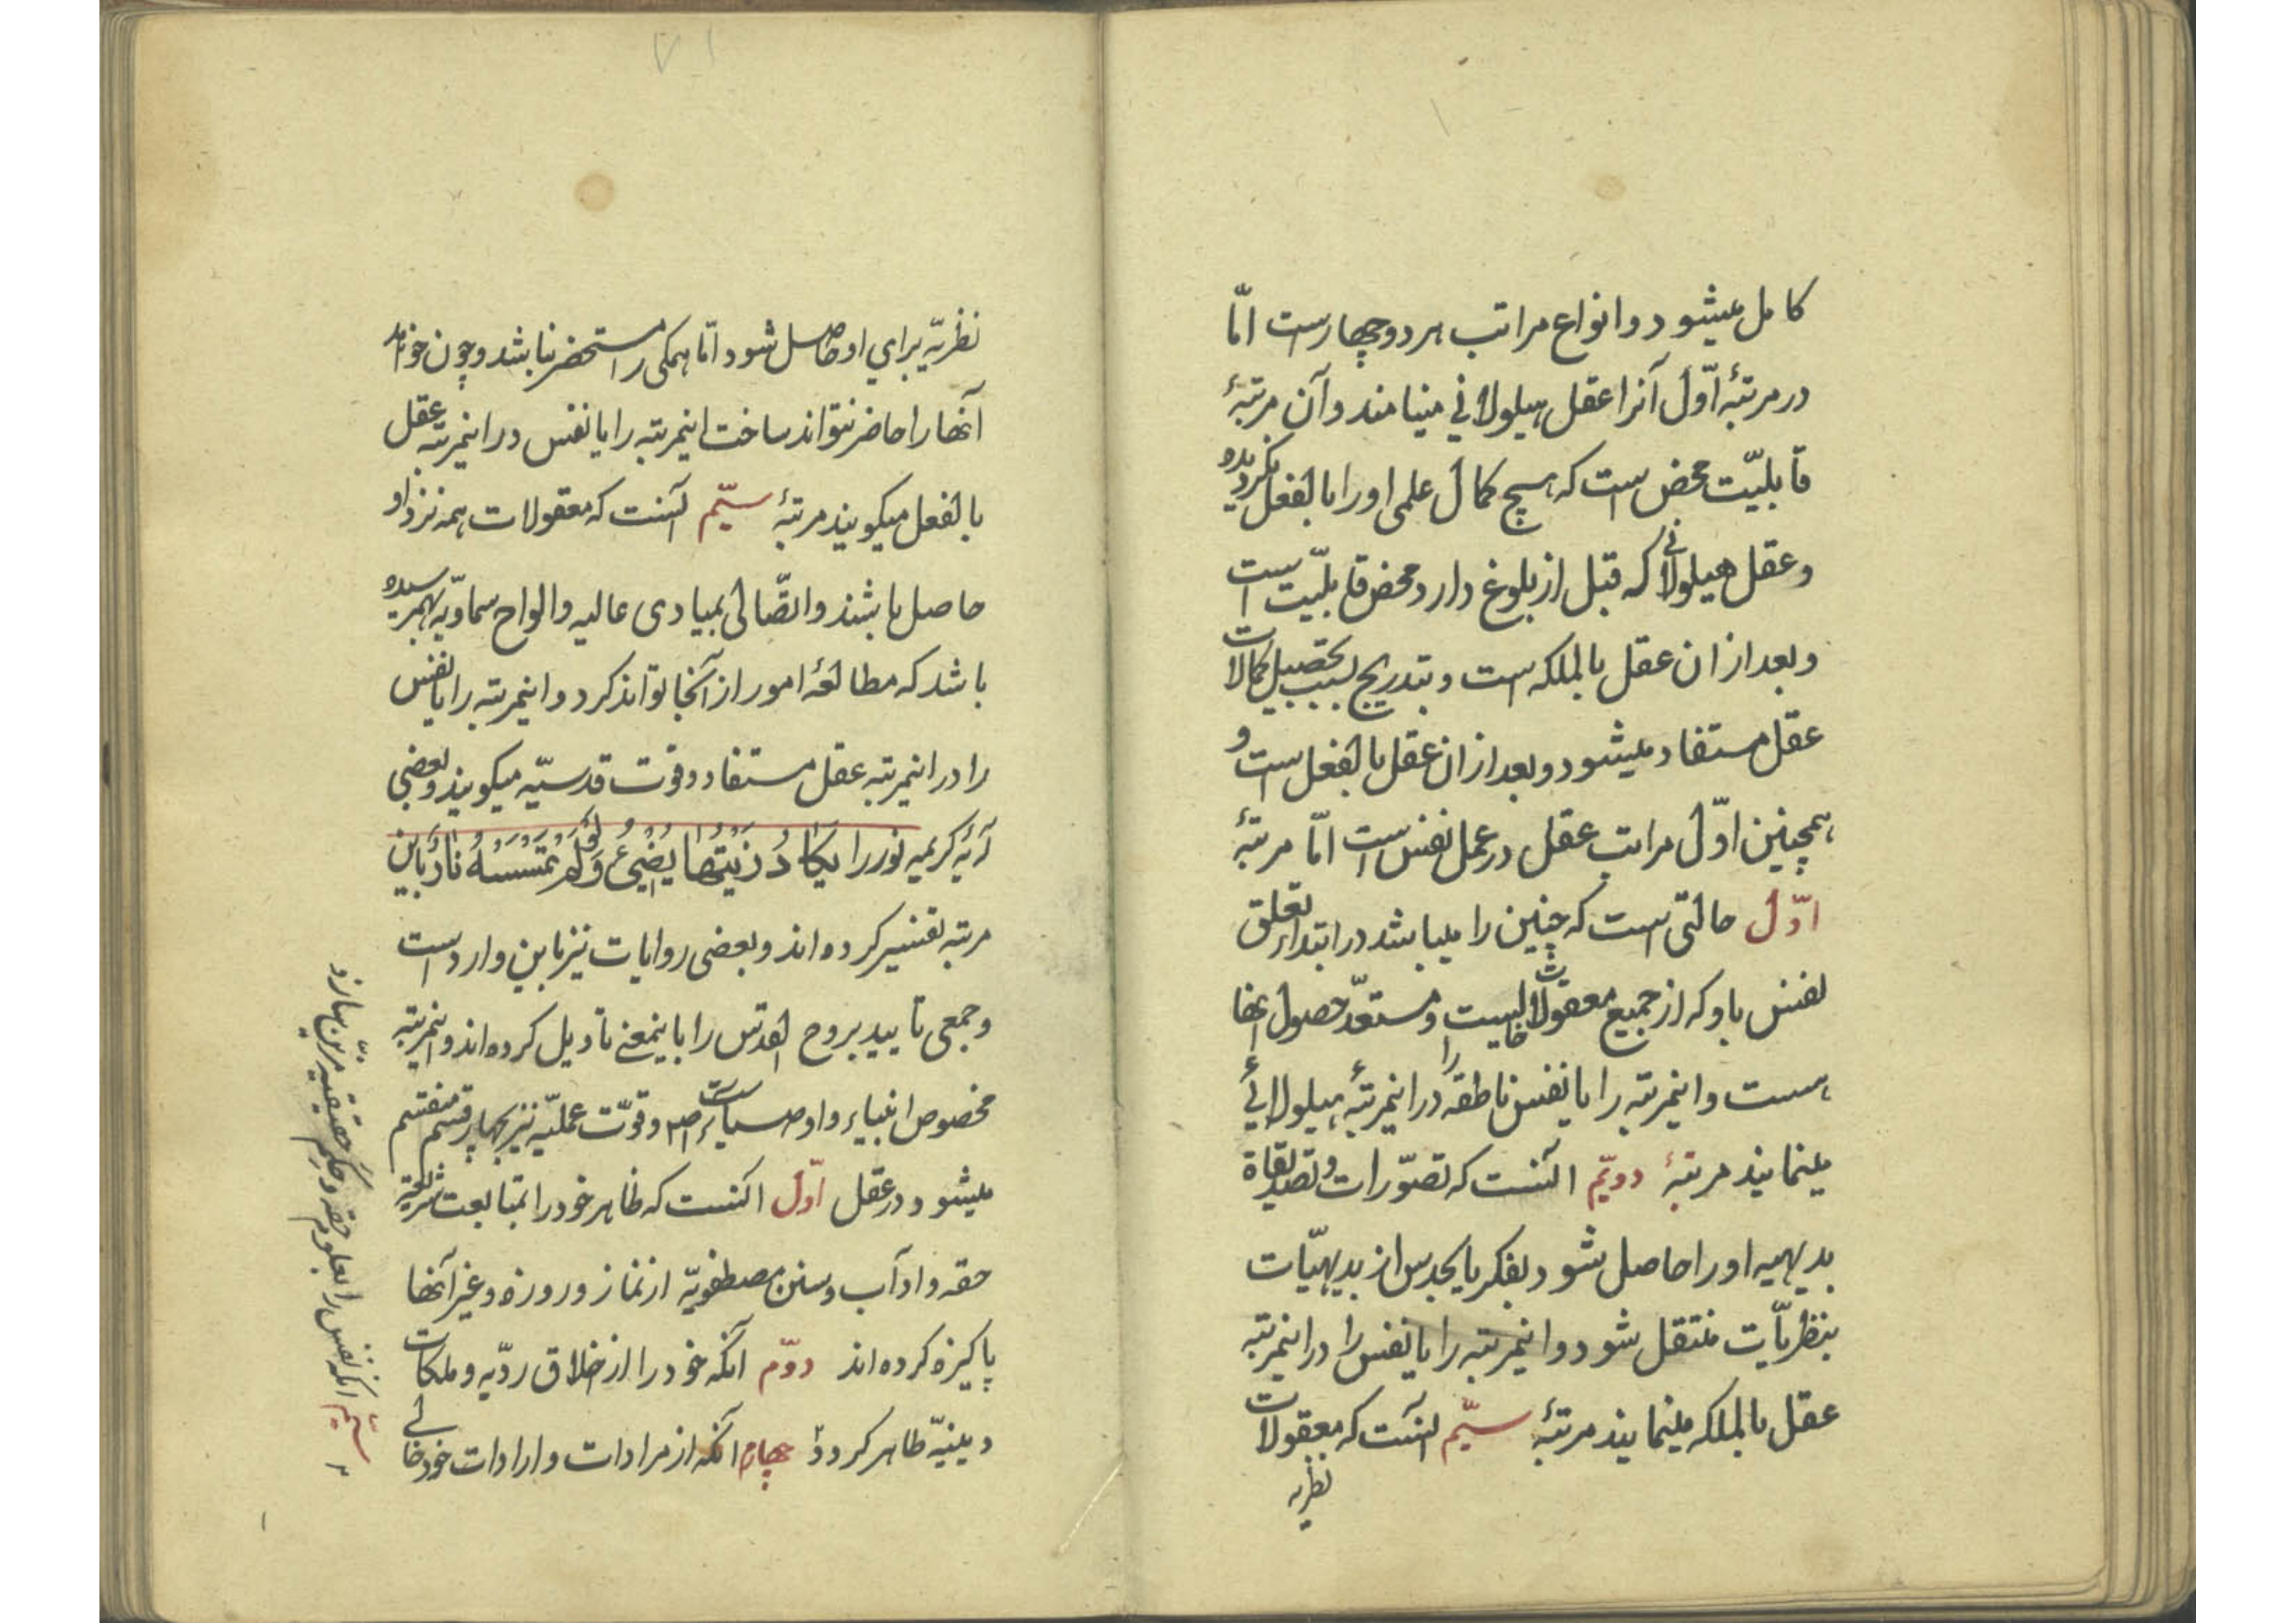 کامل میشود و انواع مراتب هر دو چهارست امّا
در مرتبۀ اوّل آنرا عقل هیولانی مینامند و آن مرتبۀ
قابلیّت محض است که هیچ کمال علمی او را بالفعل نکردیده
و عقل هیولانی که قبل از بلوغ دارد محض قابلیّت است
و بعد از ان عقل بالملکه است و بتدریج بسبب تحصیل کمالات
عقل مستفاد میشود و بعد از ان عقل بالفعل است و
همچنین اوّل مراتب عقل در عمل نفس است امّا مرتبۀ
اوّل حالتی است که چنین را میباشد در ابتداء تعلق
نفس باو که از جمیع معقولات خالیست و مستعدّ حصول انها
هست و اینمرتبه را یا نفس ناطقه را در اینمرتبۀ هیولائی
مینمایند مرتبۀ دویّم آنست که تصوّرات و تصدیقاة
بدیهیه او را حاصل شود و بفکر یا بحدس از بدیهیّات
بنظریّات منتقل شود و اینمرتبه را یا نفس را در اینمرتبه
عقل بالملکه مینمایند مرتبۀ سیّم آنست که معقولات
نظریه
نظریّه برای او حاصل شود امّا همکی را مستحضر نباشد و چون خواهد
آنها را حاضر نتواند ساخت اینمرتبه را یا نفس در اینمرتبه عقل
بالفعل میکویند مرتبۀ سیّم آنست که معقولات همه نزد او
حاصل باشند و اتّصالی بمبادی عالیه و الواح سماویّه بهمرسیده
باشد که مطالعۀ امور از آنجا تواند کرد و اینمرتبه را یا نفس
را در اینمرتبه عقل مستفاد و قوت قدسیّه میکویند و بعضی
آیۀ کریمه نور را یَکادُ زَیْتُها یُضِیءُ وَلَوْ لَمْ تَمْسَسْهُ نارٌ باین
مرتبه تفسیر کرده‌اند و بعضی روایات نیز باین وارد است
و جمعی تایید بروح القدس را باینمعنی تاویل کرده‌اند و اینمرتبه
مخصوص انبیاء و اوصیاست و قوّت عملیّه نیز بچهار قسم منقسم
میشود و در عقل اوّل آنست که ظاهر خود را بمتابعت شریعة
حقه و اداب و سنن مصطفویّه از نماز و روزه و غیر آنها
پاکیزه کرده‌اند دوّم آنکه خود را از اخلاق ردّیه و ملکات
دینیّه طاهر کردد چهارم آنکه از مرادات و ارادات خود خالی
سیّم آنکه نفس را بعلوم حقه و حکم حقیقیه مزیّن سازد